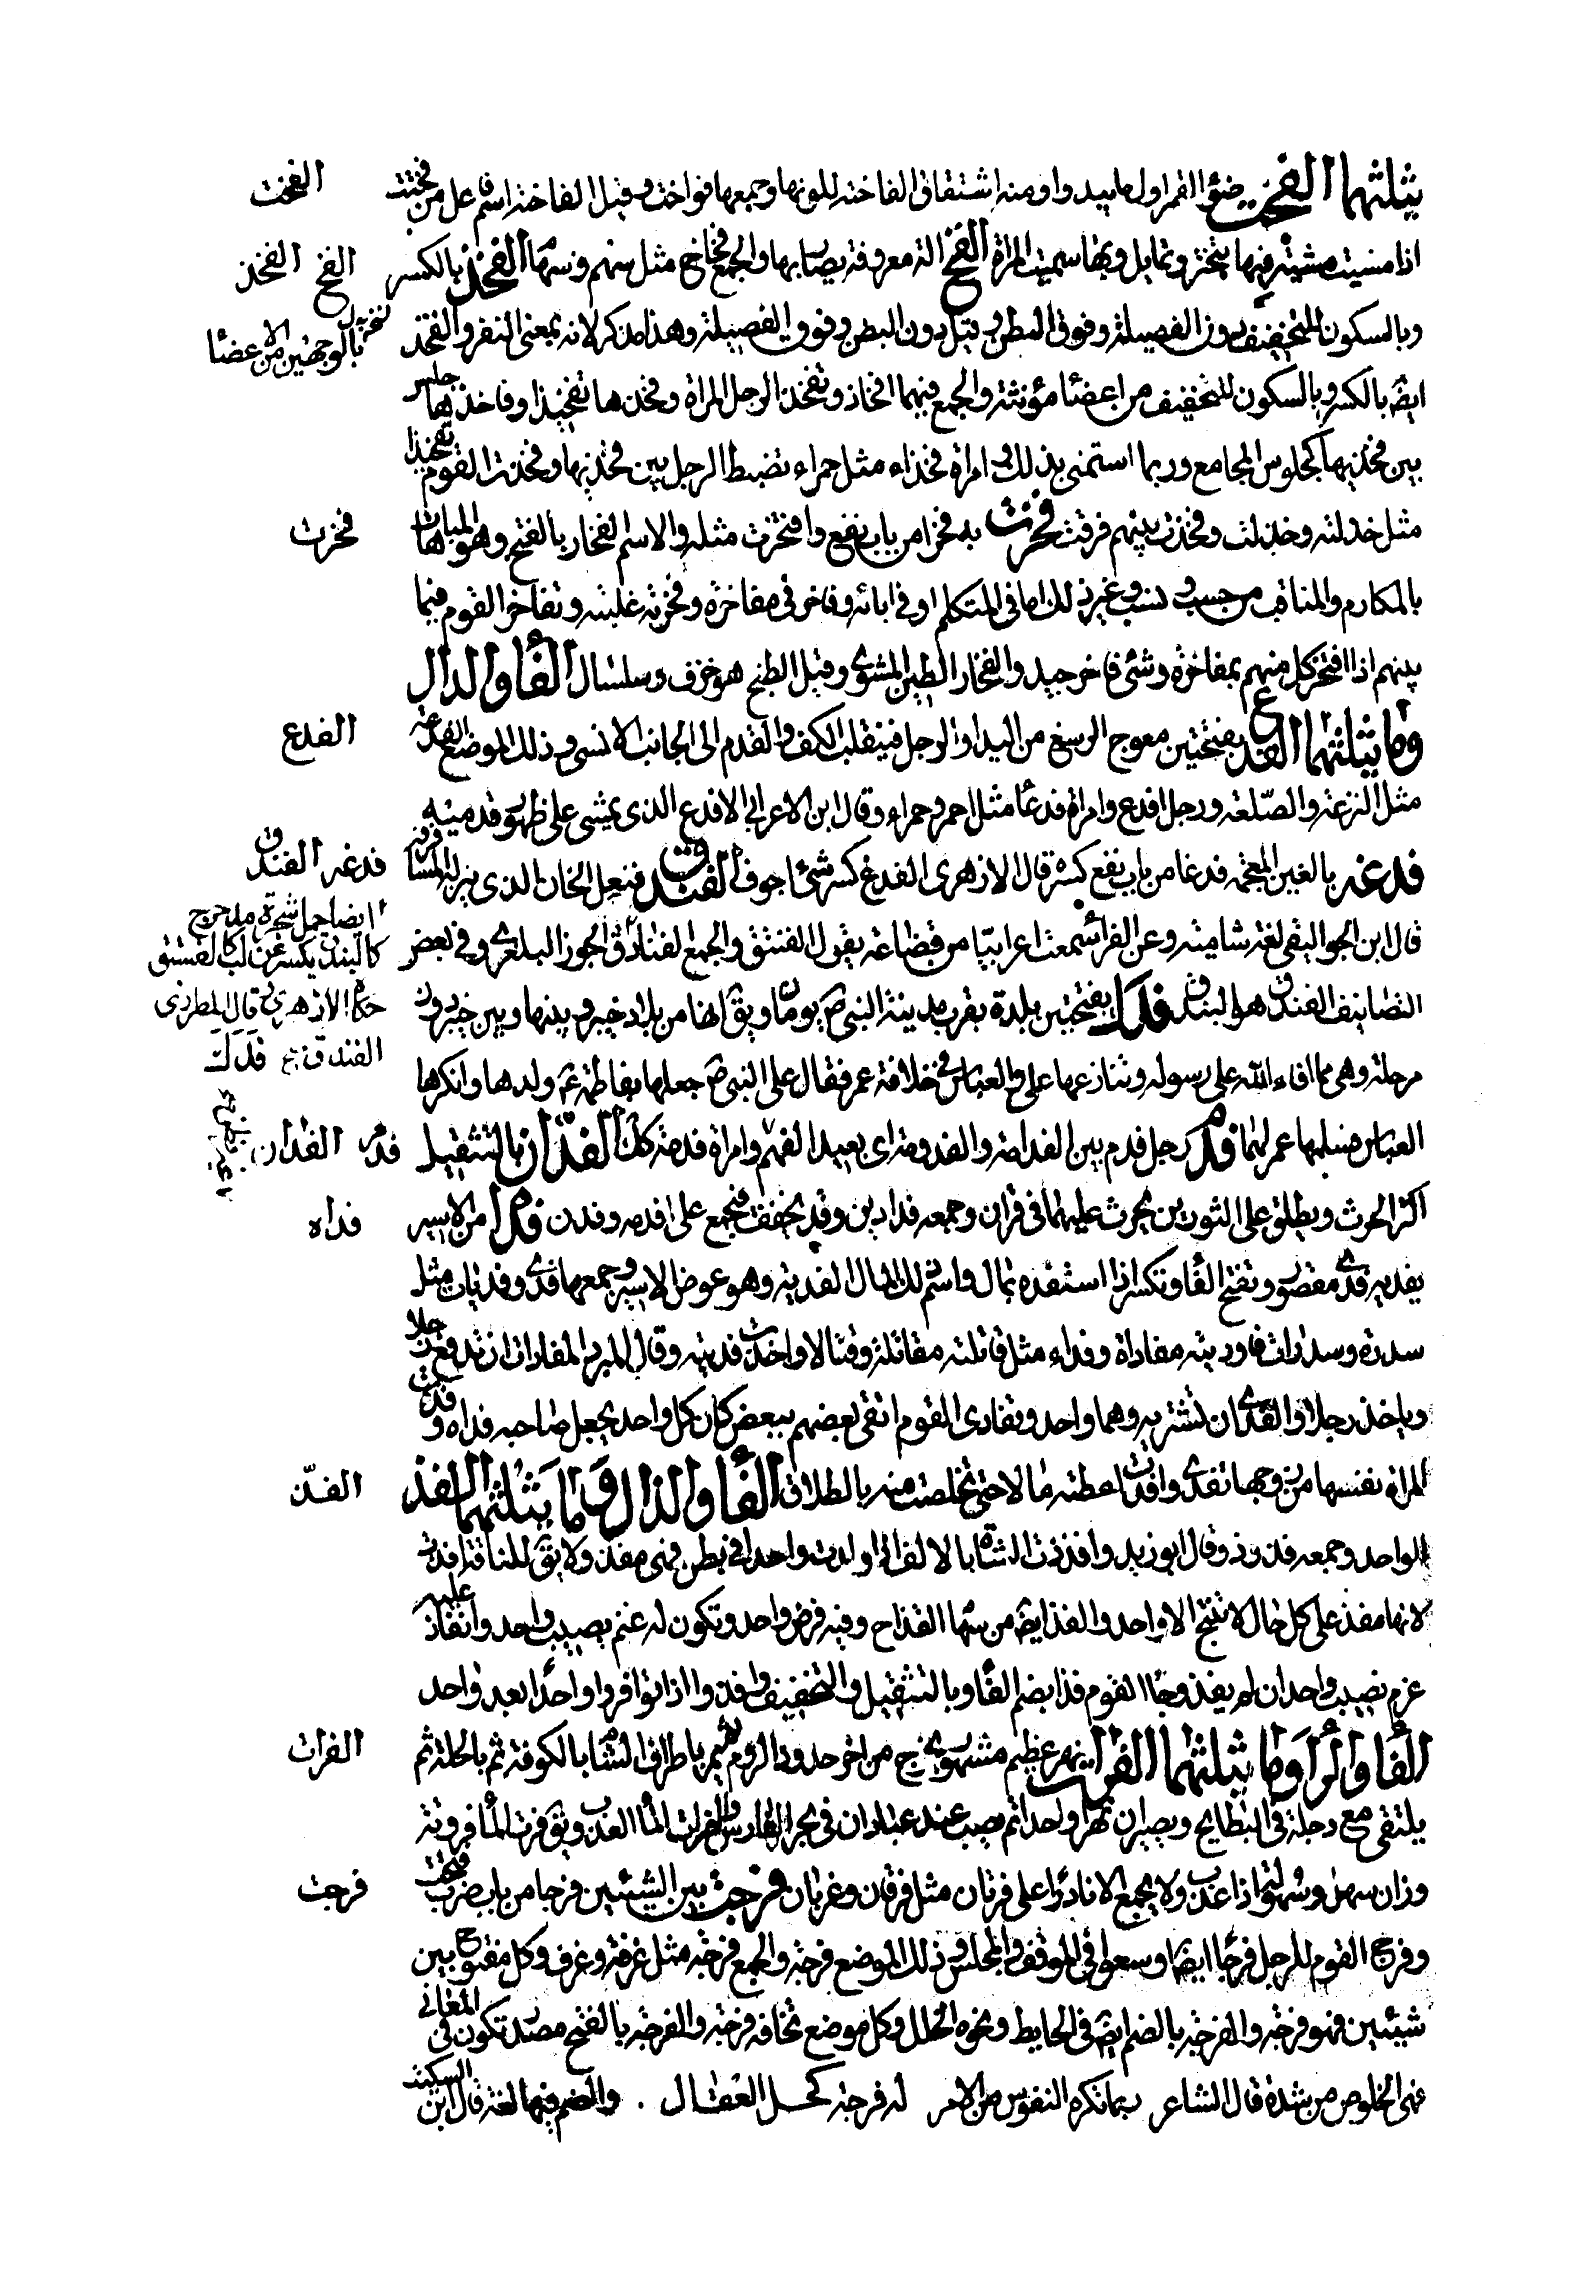 يثلثهما الفخت ضوء القمر اول ما يبدو ومنه اشتقاق الفاخته للونها وجمعها فواخت وقيل الفاختة اسم فاعل من فختت
اذا مشيت مشية فيها تبختر وتمايل وبها سميت المراة الفخ الة معروفة يصاد بها والجمع فخاخ مثل سهم وسهام الفخذ بالكسر
وبالسكون للتخفيف دون الفصيلة وفوق البطن وقيل دون البطن وفوق الفصيلة وهذا مذكر لانه بمعنى النفر والفخذ
ايضا بالكسر وبالسكون للتخفيف من اعضا مؤنثة والجمع فيهما افخاذ وتفخذ الرجل المراة وفخذها تفخيذا وفاخذها جلس
بين فخذيها كجلوس المجامع وربما استمنى بذلك وامراة فخذاء مثل حمراء تضبط الرجل بين فخذيها وفخذت القوم تفخيذا
مثل خذلته وخذلت وفخذت بينهم فرقت فخرت به فخرا من باب نفع وافتخرت مثله والاسم الفخار بالفتح وهو المباهات
بالمكارم والمناقب من حسب ونسب وغير ذلك اما في المتكلم او في ابائه وفاخرنى مفاخرة وفخرته غلبته وتفاخر القوم فيما
بينهم اذا افتخر كل منهم بمفاخرة وشئ فاخر جيد والفخار الطين المشوى وقبل الطبخ هو خزف وسلسال الفا والدال
وما يثلثهما الفدع بفتحتين معوج الرسغ من اليد او الرجل فينقلب الكف والقدم الى الجانب الانسى وذلك الموضع الفدعة
مثل النزعة والصلعة ورجل افدع وامراة فدعا مثل احمر وحمراء وقال ابن الاعرابى الافدع الذى يمشى على ظهور قدميه
فدغه بالغين المعجمة فدغا من باب نفع كسره قال الازهرى الفدغ كسر شئ اجوف الفندق فنعل الخان الذى ينزله المسافرون
قال ابن الجواليقى لغة شامية وعن الفراء سمعت اعرابيا من قضاعة يقول الفنتق والجمع الفنادق الجوز البلغرى وفي بعض
التصانيف الفندق هو البندق فدك بفتحتين بلدة بقرب مدينة النبى ص يومان ويق انها من بلاد خيبر وبينها وبين خيبر دون
مرحلة وهى مما افاء الله على رسوله وتنازعها على والعباس فى خلافة عمر فقال على النبى ص جعلها بفاطمة ع وولدها وانكرها
العباس فسلمها عمر لهما فدم رجل فدم بين الفدامة والفدومة اى بعيد الفهم وامراة فدمة كذلك الفدان بالتثقيل
اكثر الحرث ويطلق على الثورين يحرث عليهما في قران وجمعه فدادين وقد يخفف فيجمع على افدنه وفدن فداه من الاسير
يفديه فدى مقصور وتفتح الفا وتكسر اذا استنقذه بمال واسم ذلك المال الفدية وهو عوض الاسير وجمعها فدى وفديات مثل
سدرة وسدرات وفاديته مفاداة وفداء مثل قاتلته مقاتلة وقتالا واخذت فديته وقال المبرد المفادات ان تدفع رجلا
وياخذ رجلا والفدى ان تشتريه وهما واحد وتفادى القوم اتقى بعضهم ببعض كان كل واحد يجعل صاحبه فداه وفدت
المراة نفسها من زوجها تفدى وافتدت اعطته مالا حتى تخلصت منه بالطلاق الفا والذال وما يثلثهما الفذ
الواحد وجمعه فذوذ وقال ابو زيد وافذذت الشاة بالالف اذا ولدت واحدا في بطن فهى مفذ ولا يق للناقة افذت
لانها مفذ على كل حال لا تنتج الا واحد والفذ ايض من سهام القداح وفيه فرض واحد وتكون له غنم نصيب واحد وانفاذ عليه
غرم نصيب واحد ان لم يفذ وجاء القوم فذا بضم الفا وبالتثقيل والتخفيف وافذوا اذا توا فرد واحدا بعد واحد
الفا والرا وما يثلثهما الفرات نهر عظيم مشهور يخرج من اخر حدود الروم ثم يمر باطراف الشام ثم بالكوفة ثم بالحلة ثم
يلتقى مع دجلة فى البطايح ويصيران نهرا واحدا ثم يصب عند عبادان فى بحر الفارس والفرات الماء العذب ويق فرت الماء فروتة
وزان سهل وسهولة اذا عذب ولا يجمع الا نادرا على فرتان مثل فرقان وغربان فرجت بين الشيئين فرجا من باب ضرب فتحت
وفرج القوم للرجل فرجا ايضا وسعوا فى الموقف والمجلس وذلك الموضع فرجة والجمع فرج مثل غرفة وغرف وكل مفتوح بين
شيئين فهو فرجة والفرجة بالضم ايض فى الحايط ونحوه الخلل وكل موضع تخافه فرجة والفرجة بالفتح مصدر تكون فى المعانى
فهى الخلوص من شدة قال الشاعر بما تكره النفوس من الامر له فرجة كحل العقال . والضم فيها لغة قال ابن السكيت
الفخت
الفخ الفخذ
بالوجهين من الاعضا
فخرت
الفدع
فدغه الفندق
ايضا حمل شجرة مدحرج
كالبندق يكسر عن لب كالفستق
حكاه الازهرى وقال المطرزى
الفندق فدك
فدم الفدان
فداه
الفذ
الفرات
فرجت